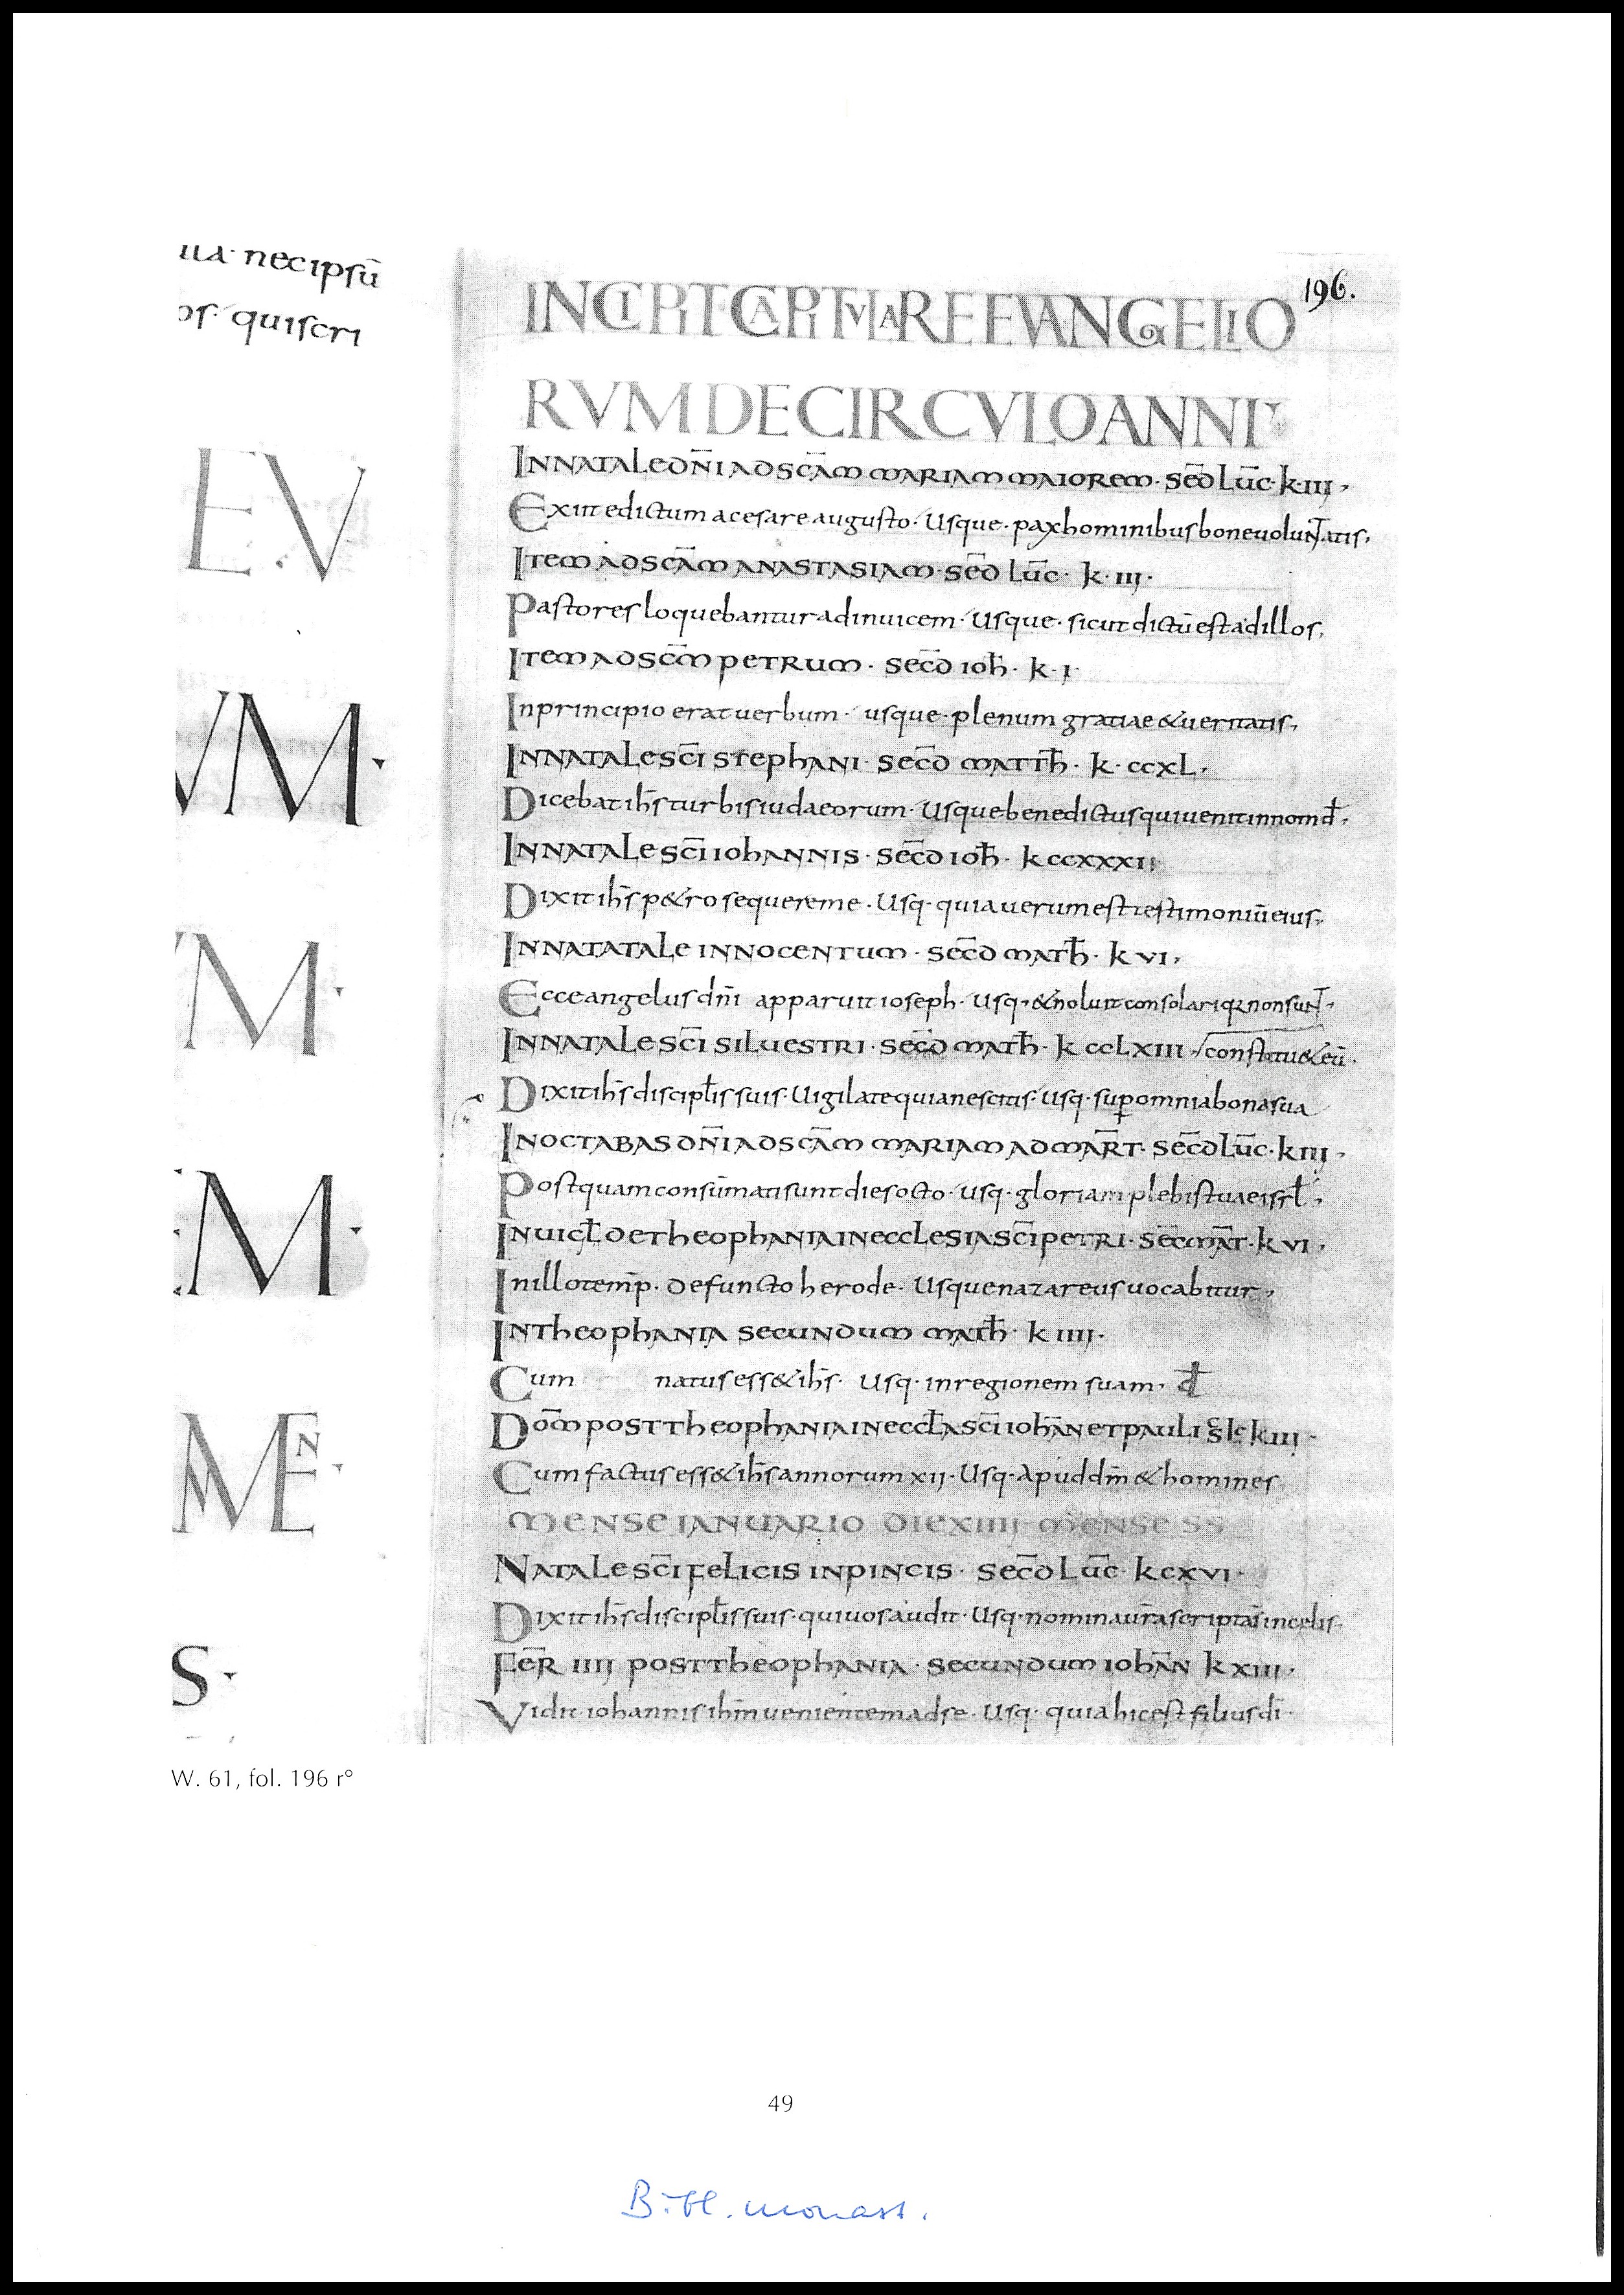 ııa· necipsū
os· quiscri
EV
VM·
M·
EM·
MEN·
S·
196.
INCIPIT CAPITVLARE EVANGELIO
RVM DE CIRCVLO ANNI
IN NATALE DN̄I AD SCĀM MARIAM MAIOREM · SEĊD LŪC · K · III ·
Exiit edictum a cesare augusto · Usque · pax hominibus bone uoluntatis ·
ITEM AD SCĀM ANASTASIAM · SEC̄D LŪC · K · III ·
Pastores loquebantur adinuicem · Usque · sicut dictū est ad illos ·
ITEM AD SCM̄ PETRUM · SEC̄D IOH̄ · K · I ·
In principio erat uerbum · usque · plenum gratiae & ueritatis ·
IN NATALE SCĪ STEPHANI · SEC̄D MATTH̄ · K · CCXL ·
Dicebat ih̄s turbis iudaeorum · Usque benedictus qui uenit in nom d̄ ·
IN NATALE SCĪ IOHANNIS · SEC̄D IOH̄ · K CCXXXII
Dixit ih̄s p&ro sequere me · Usq · quia uerum est testimoniū eius ·
IN NATATALE INNOCENTUM · SEC̄D MATH̄ · K VI ·
Ecce angelus dn̄i apparuit ioseph · Usq · & noluit consolari q non sunt ·
IN NATALE SCĪ SILUESTRI · SEC̄D MATH̄ · K CCLXIII · constitu& eū ·
Dixit ih̄s discipl̄is suis · Uigilate quia nescitis · Usq · sup omnia bona sua
IN OCTABAS DN̄I AD SCĀM MARIAM AD MAR̄T · SEC̄D LŪC · K III ·
Postquam consūmati sunt dies octo · Usq · gloriam plebis tuae isrl̄ ·
IN UICL̄ DE THEOPHANIA IN ECCLESIA SCĪ PETRI · SEC̄ MĀT · K VI ·
In illo temp̄ · defuncto herode · Usque nazareus uocabitur ·
IN THEOPHANIA SECUNDUM MATH̄ · K IIII ·
Cum natus ess& ih̄s · Usq · in regionem suam ·
DOM̄ POST THEOPHANIA IN ECCL̄A SCĪ IOHAN̄ ET PAULI K III ·
Cum factus ess& ih̄s annorum xii · Usq · Apud dm̄ & homines
MENSE IANUARIO DIE XIIII MENSE SS
NATALE SCĪ FELICIS IN PINCIS · SEC̄D LŪC · K CXVI ·
Dixit ih̄s discipl̄is suis · qui uos audit · Usq · nomina ur̄a scripta s in celis ·
FER̄ IIII POST THEOPHANIA · SECUNDUM IOHĀN K XIII ·
Vidit iohannis ih̄m uenientem ad se · Usq · quia hic est filius di ·
W. 61, fol. 196 r°
49
Bibl. monast.